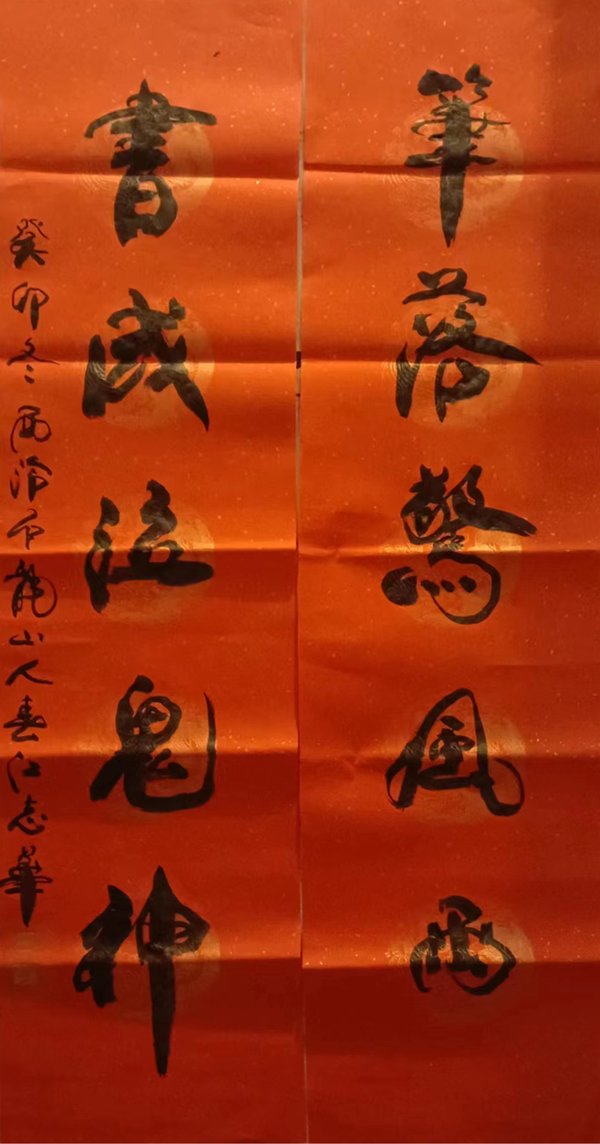 筆落驚風雨
書成泣鬼神
癸卯冬西泠下龍山人春江志華